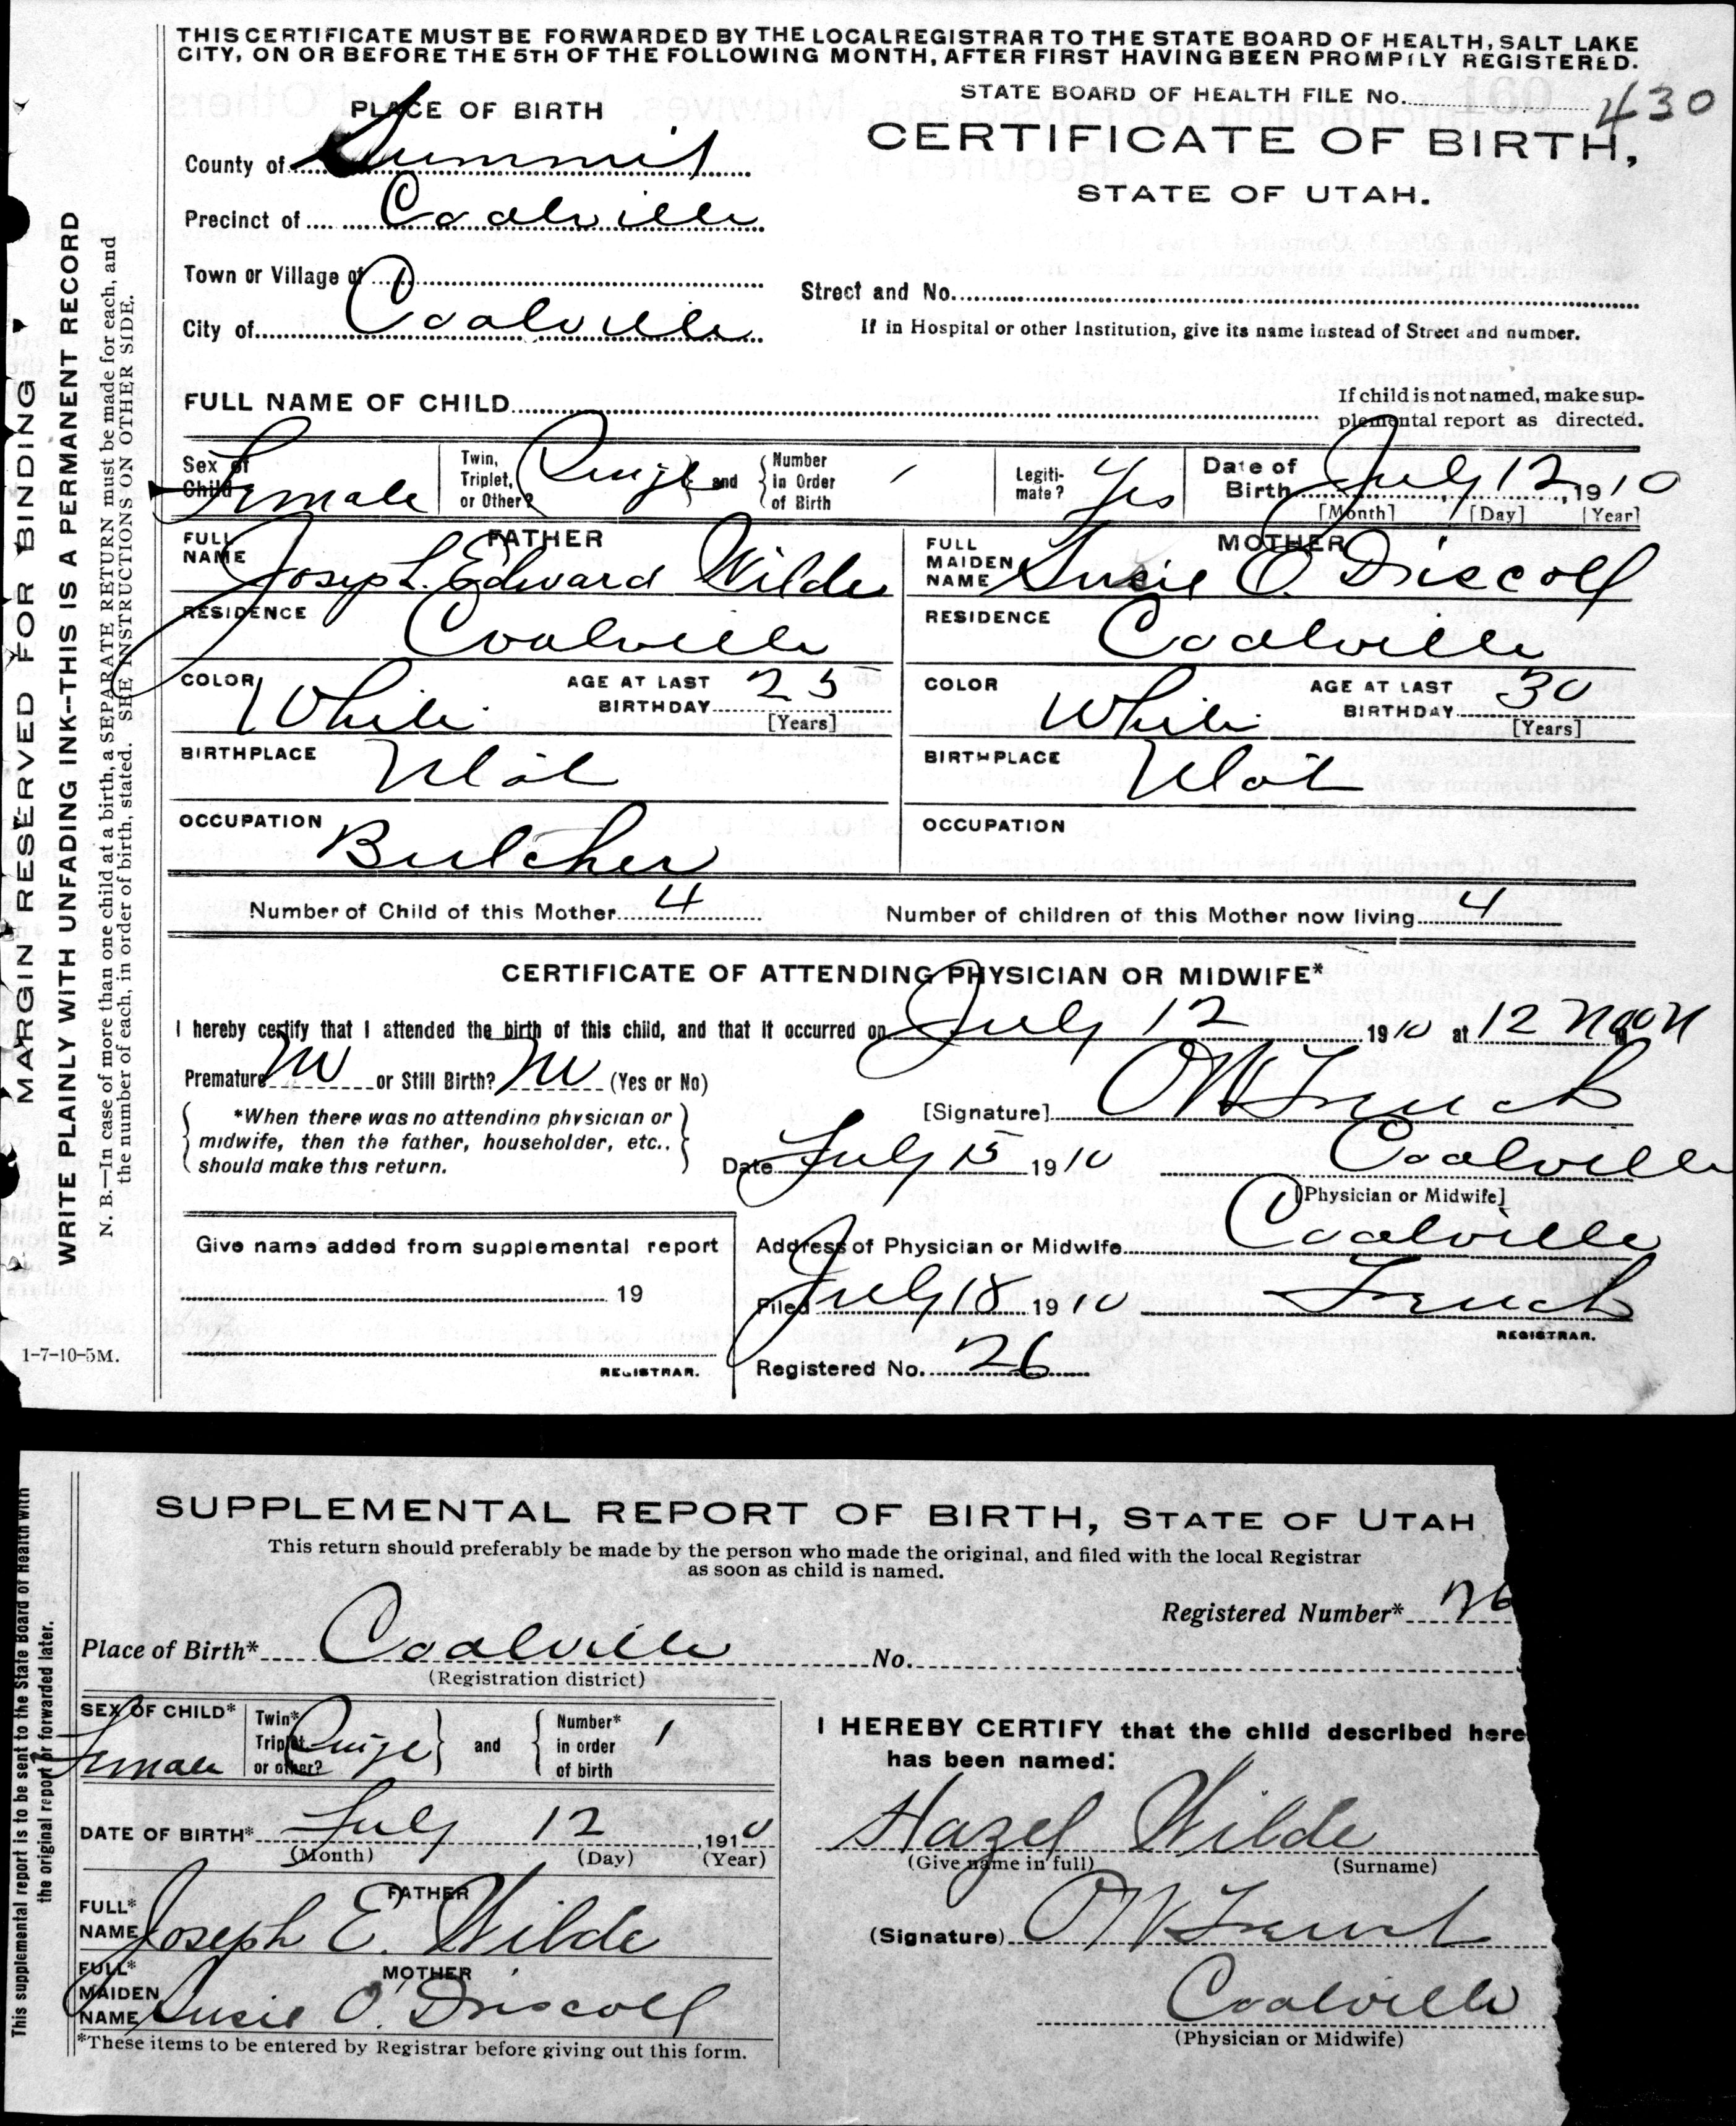 THIS CERTIFICATE MUST BE FORWARDED BY THE LOCAL REGISTRAR TO THE STATE BOARD OF HEALTH, SALT LAKE
CITY, ON OR BEFORE THE 5TH OF THE FOLLOWING MONTH, AFTER FIRST HAVING BEEN PROMPTLY REGISTERED.
STATE BOARD OF HEALTH FILE No. 430
CERTIFICATE OF BIRTH,
STATE OF UTAH.
PLACE OF BIRTH
County of Summit
Precinct of Coalville
Town or Village of
City of Coalville
Street and No.
If in Hospital or other Institution, give its name instead of Street and number.
FULL NAME OF CHILD
If child is not named, make sup-
plemental report as directed.
Sex of Child Female
Twin, Triplet, or Other?
and
Number in Order of Birth 1
Legiti-mate? Yes
Date of Birth July 12, 1910
[Month] [Day] [Year]
FATHER
FULL NAME Joseph Edward Wilde
RESIDENCE Coalville
COLOR White
AGE AT LAST BIRTHDAY 25
[Years]
BIRTHPLACE Utah
OCCUPATION Butcher
MOTHER
FULL MAIDEN NAME Susie O. Driscoll
RESIDENCE Coalville
COLOR White
AGE AT LAST BIRTHDAY 30
[Years]
BIRTHPLACE Utah
OCCUPATION
Number of Child of this Mother 4
Number of children of this Mother now living 4
CERTIFICATE OF ATTENDING PHYSICIAN OR MIDWIFE*
I hereby certify that I attended the birth of this child, and that it occurred on July 12 1910 at 12 Noon M
Premature No or Still Birth? No (Yes or No)
*When there was no attending physician or
midwife, then the father, householder, etc.,
should make this return.
[Signature]
Date July 15 1910 Coalville
[Physician or Midwife]
Give name added from supplemental report
19
REGISTRAR.
Address of Physician or Midwife Coalville
Filed July 18 1910
REGISTRAR.
Registered No. 26
1-7-10-5M.
MARGIN RESERVED FOR BINDING
WRITE PLAINLY WITH UNFADING INK--THIS IS A PERMANENT RECORD
N. B.—In case of more than one child at a birth, a SEPARATE RETURN must be made for each, and
the number of each, in order of birth, stated. SEE INSTRUCTIONS ON OTHER SIDE.
SUPPLEMENTAL REPORT OF BIRTH, STATE OF UTAH
This return should preferably be made by the person who made the original, and filed with the local Registrar
as soon as child is named.
Registered Number* 26
Place of Birth* Coalville No.
(Registration district)
SEX OF CHILD* Female
Twin* Triplet or other?
and
Number* in order of birth 1
DATE OF BIRTH* July 12, 1910
(Month) (Day) (Year)
FATHER
FULL* NAME Joseph E. Wilde
MOTHER
FULL* MAIDEN NAME Susie O'Driscoll
*These items to be entered by Registrar before giving out this form.
I HEREBY CERTIFY that the child described here
has been named:
Hazel Wilde
(Give name in full) (Surname)
(Signature)
Coalville
(Physician or Midwife)
This supplemental report is to be sent to the State Board of Health with
the original report or forwarded later.